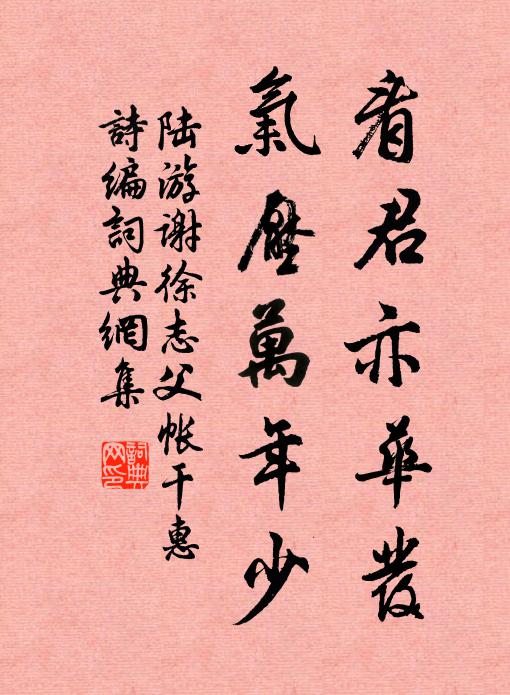 看君亦華發
氣壓萬年少
陸游謝徐志父帳干惠
詩編詞典網集
詞典網印